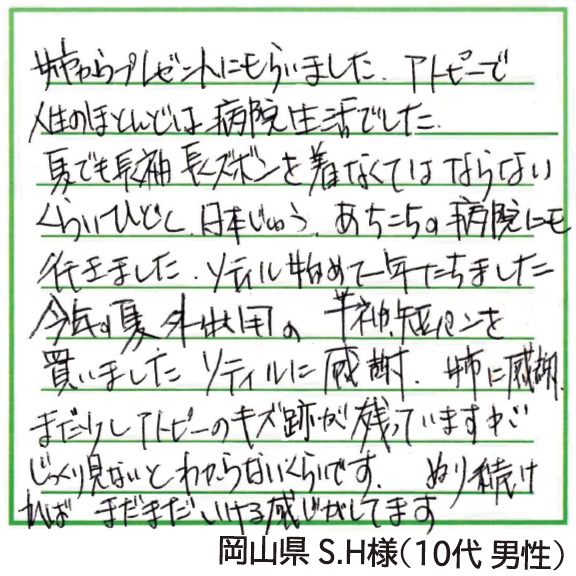 姉からプレゼントにもらいました。アトピーで
人生のほとんどは病院生活でした。
夏でも長袖長ズボンを着なくてはならない
くらいひどく、日本じゅう、あちこちの病院にも
行きました。ソティル始めて一年たちました
今年の夏外出用の半袖、短パンを
買いました ソティルに感謝、姉に感謝、
まだ少しアトピーのキズ跡が残っていますが
じっくり見ないとわからないくらいです。ぬり続け
れば まだまだいける感じがしてます
岡山県 S.H様(10代 男性)